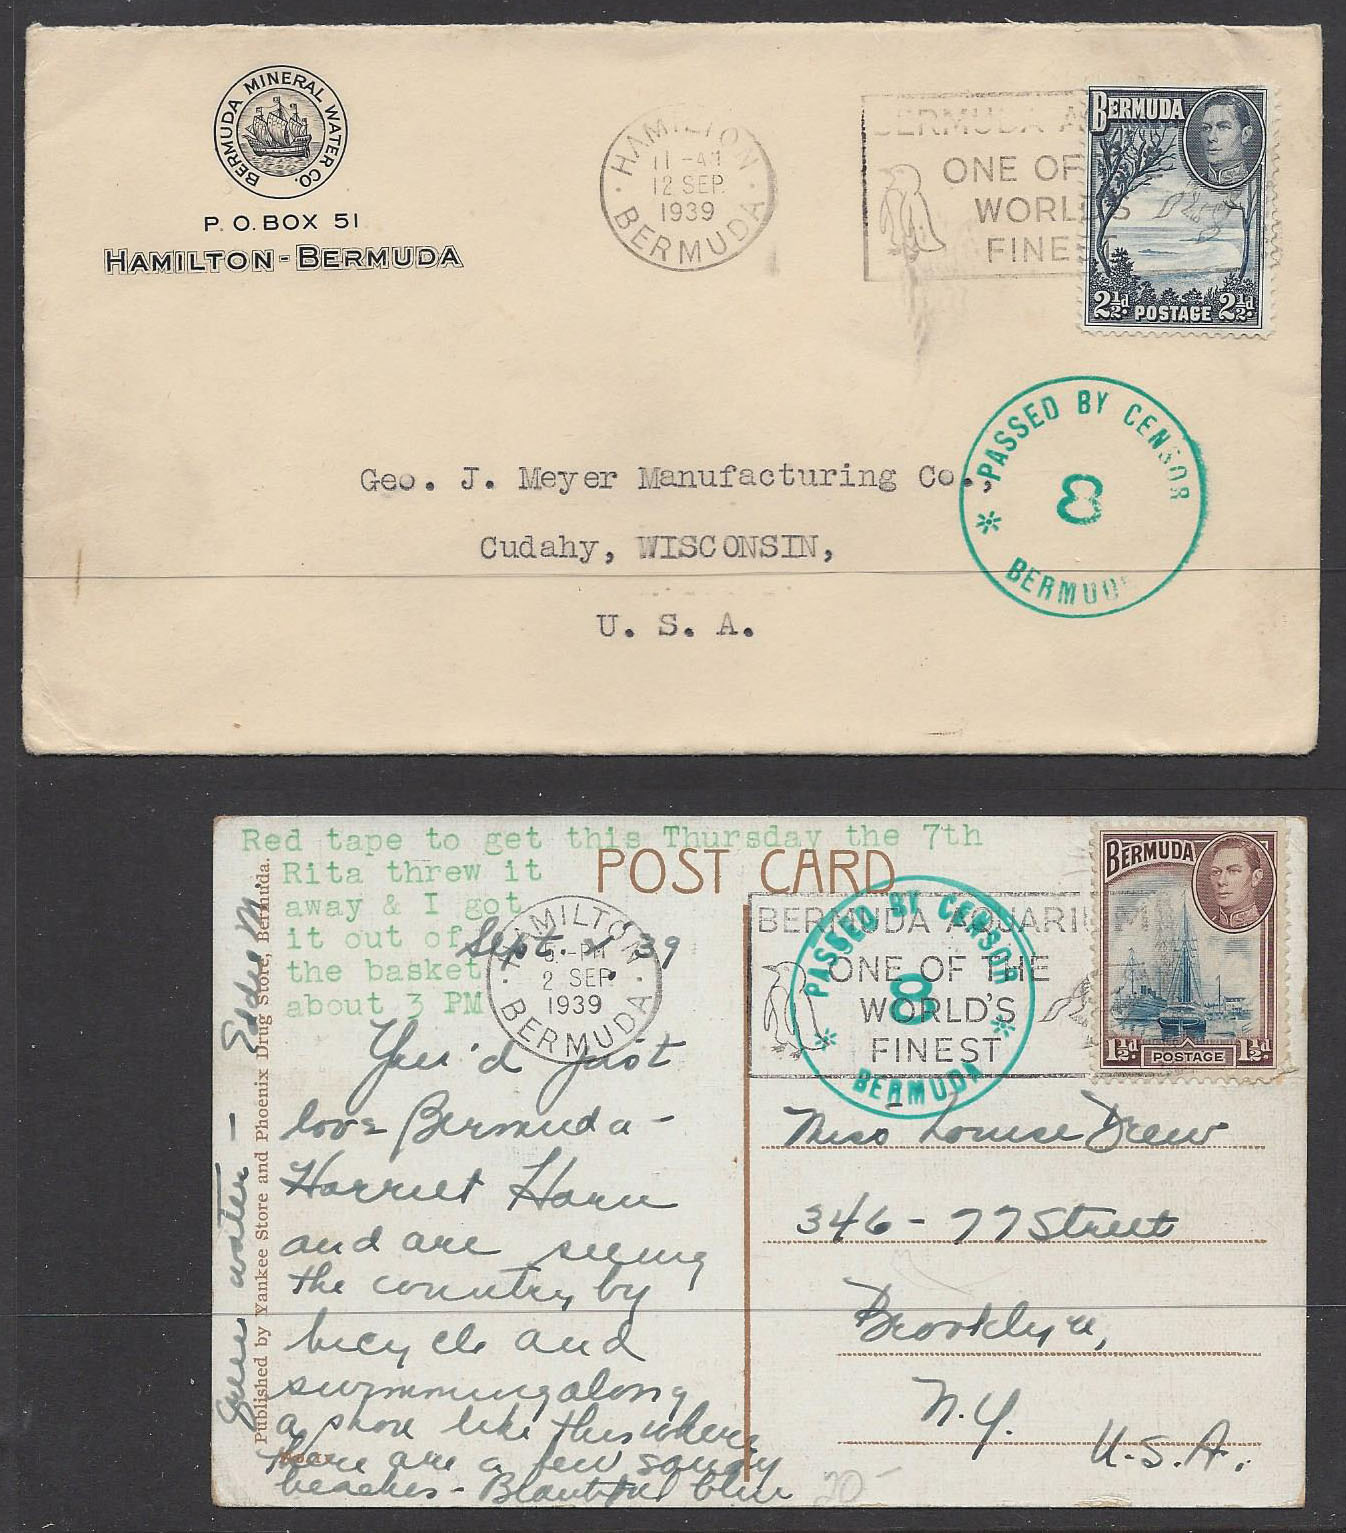 BERMUDA MINERAL WATER CO.
P.O. BOX 51
HAMILTON - BERMUDA
HAMILTON
11 - AM
12 SEP.
1939
BERMUDA
BERMUDA A
ONE OF
WORLD'S
FINEST
BERMUDA
2½d. POSTAGE 2½d.
PASSED BY CENSOR
8
BERMUDA
Geo. J. Meyer Manufacturing Co.,
Cudahy, WISCONSIN,
U. S. A.
Red tape to get this Thursday the 7th
Rita threw it
away & I got
it out of
the basket
about 3 PM
POST CARD
Sept. 39
HAMILTON
PM
2 SEP.
1939
BERMUDA
BERMUDA AQUARIUM
ONE OF THE
WORLD'S
FINEST
PASSED BY CENSOR
8
BERMUDA
BERMUDA
1½d POSTAGE 1½d
You'd just
love Bermuda -
Harriet
and are seeing
the country by
bicycle and
swimming along
a shore like this where
there are a few sandy
beaches - Beautiful blue
green water -
Published by Yankee Store and Phoenix Drug Store, Bermuda.
Miss Louise Drew
346 - 77 Street
Brooklyn,
N.Y.
U.S.A.
20 -